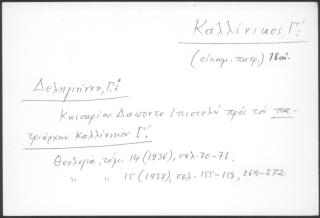 Καλλίνικος, Γ΄.
(οἰκουμ. πατρ.) 18 αἰ.
Δεληγιάννη, Γ.
Καισαρίου Δαπόντε Ἐπιστολὴ πρὸς τὸν πα-
τριάρχην Καλλίνικον Γ΄.
Θεολογία, τόμ. 14 (1936), σελ. 70-71.
" " 15 (1937), σελ. 155-158, 269-272.